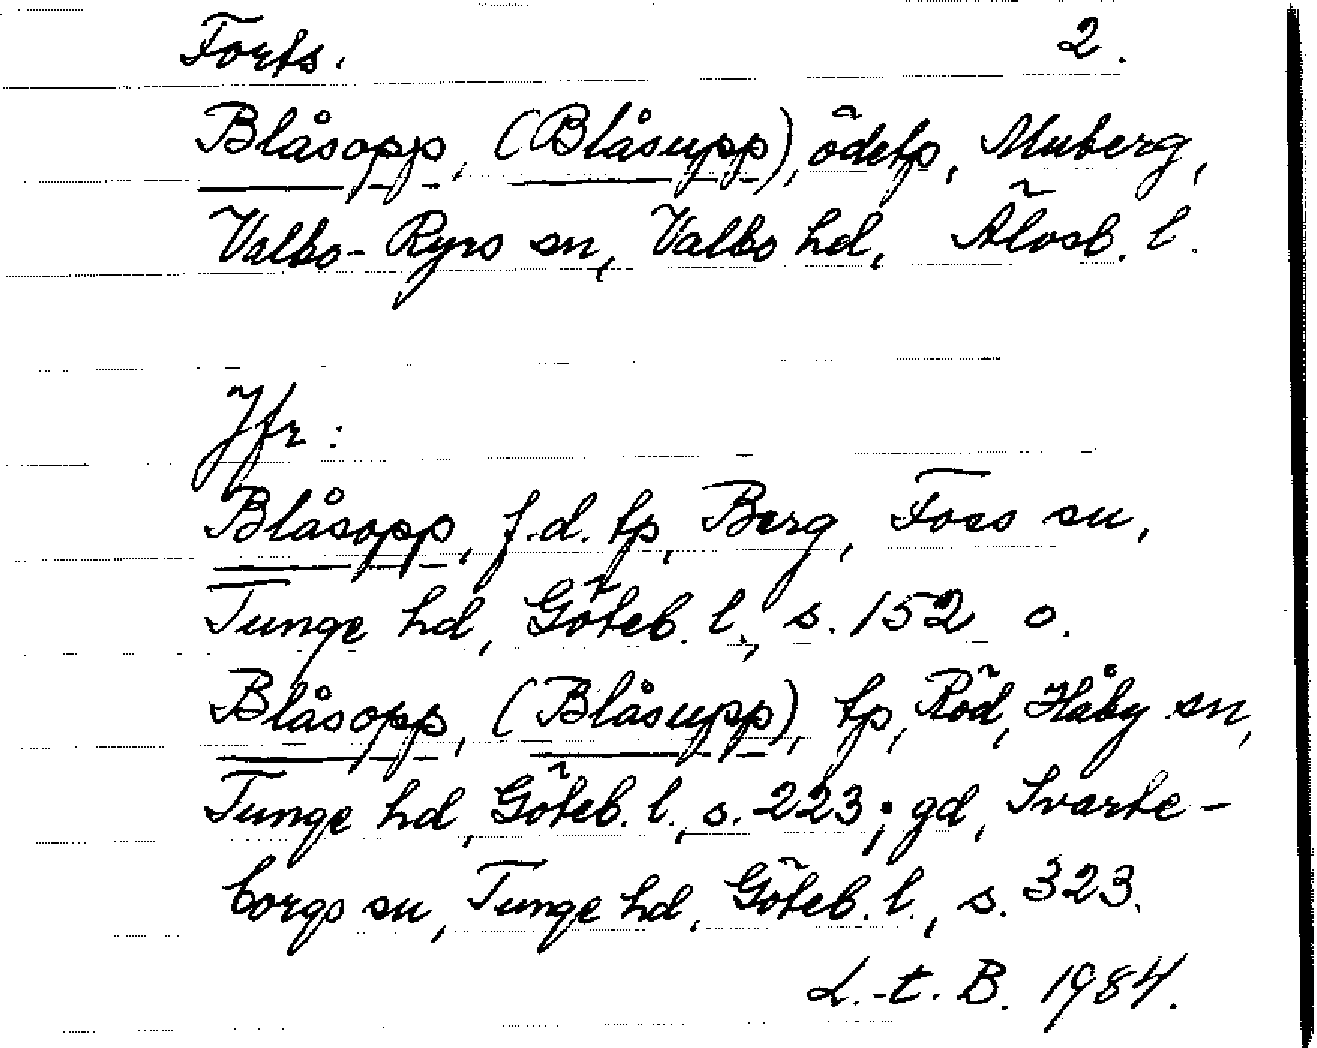 Forts. 2.
Blåsopp, (Blåsupp), ödetp, Muberg,
Valbo-Ryrs sn, Valbo hd, Älvsb. l.
Jfr:
Blåsopp, f.d. tp, Berg, Foss sn,
Tunge hd, Göteb. l., s. 152 o.
Blåsopp, (Blåsupp), tp, Röd, Håby sn,
Tunge hd, Göteb. l., s. 223; gd, Svarte-
borgs sn, Tunge hd, Göteb. l., s. 323.
L.-t. B. 1984.